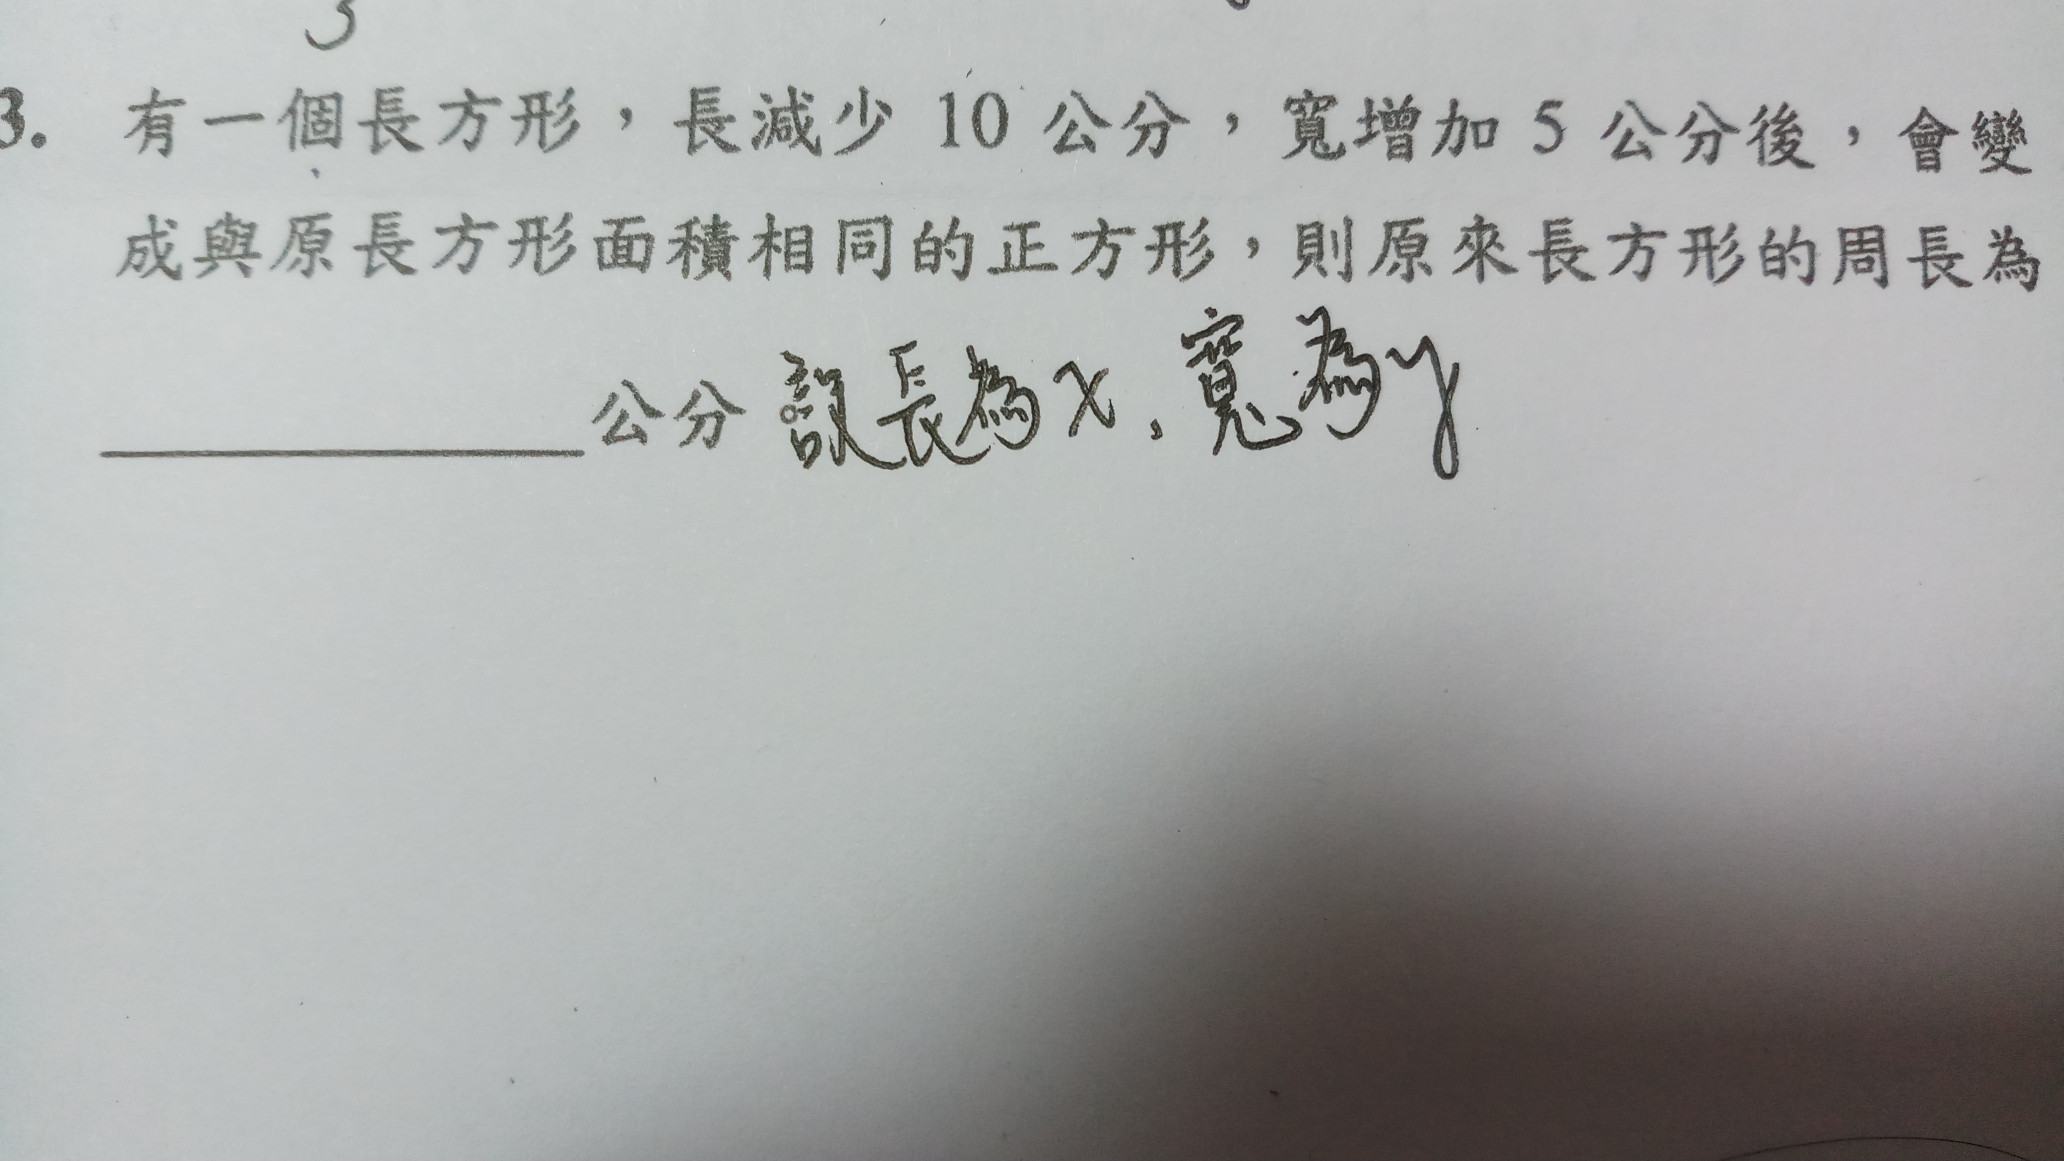 3. 有一個長方形，長減少 10 公分，寬增加 5 公分後，會變
成與原長方形面積相同的正方形，則原來長方形的周長為
公分 設長為x，寬為y